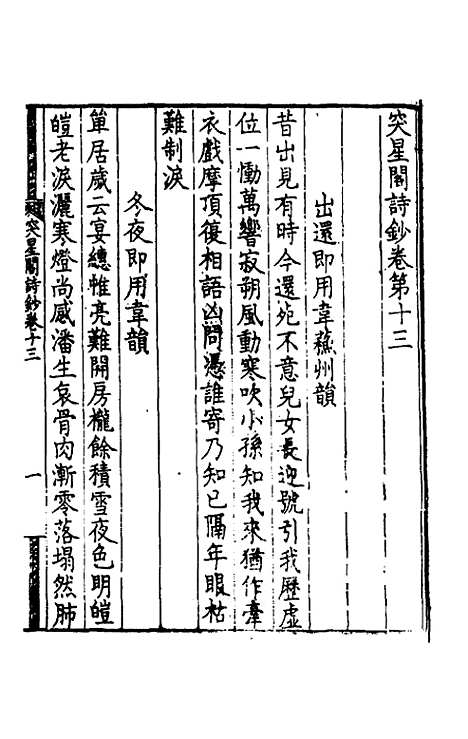 突星閣詩鈔卷第十三
出還即用韋蘇州韻
昔出見有時今還宛不意兒女長迎號引我歷虛
位一慟萬響寂朔風動寒吹小孫知我來猶作牽
衣戲摩頂復相語凶問憑誰寄乃知已隔年眼枯
難制淚
冬夜即用韋韻
單居歲云宴總帷亮難開房櫳餘積雪夜色明皚
皚老淚灑寒燈尚感潘生哀骨肉漸零落塌然肺
突星閣詩鈔卷十三
一